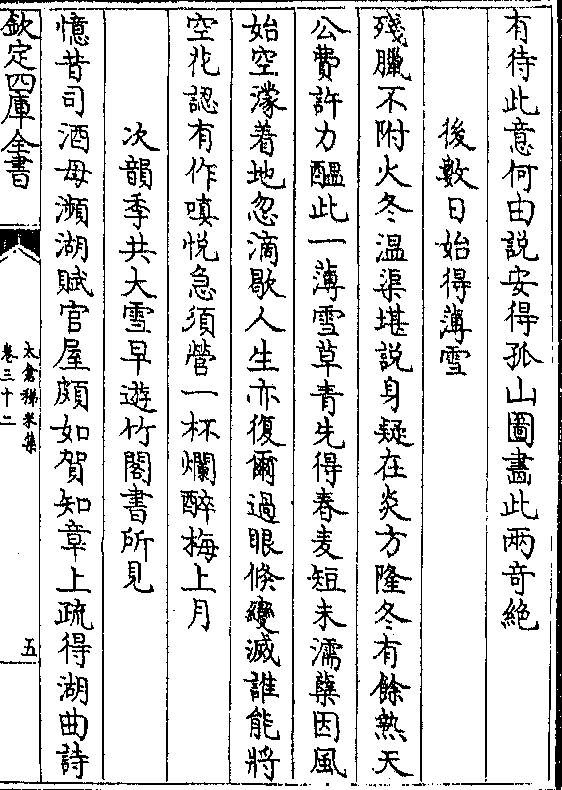 有待此意何由説安得孤山圖畵此兩竒絶
後數日始得薄雪
殘臘不附火冬温渠堪説身疑在炎方隆冬有餘熱天
公費許力醖此一薄雪草青先得春麦短未濡蘖因風
始空濛着地忽滴歇人生亦復爾過眼倐變滅誰能將
空花認有作嗔悦急須營一杯爛醉梅上月
次韻季共大雪早遊竹閣書所見
憶昔司酒毋瀕湖賦官屋頗如賀知章上疏得湖曲詩
欽定四庫全書
太倉稊米集
卷三十二
五